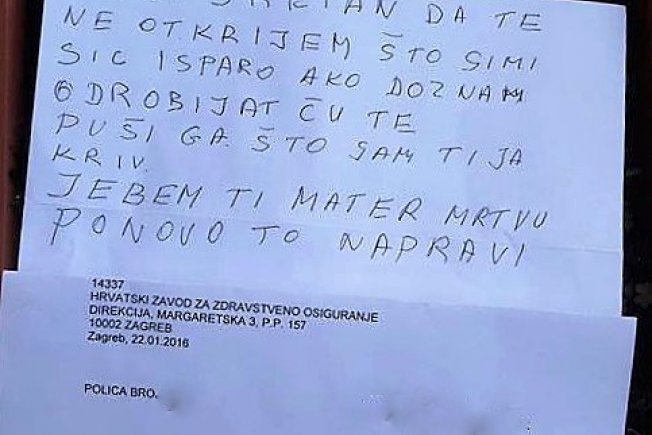 DA TE
NE OTKRIJEM ŠTO SIMI
SIC ISPARO AKO DOZNAM
ODROBIJAT ĆU TE
PUŠI GA ŠTO SAM TI JA
KRIV.
JEBEM TI MATER MRTVU
PONOVO TO NAPRAVI
14337
HRVATSKI ZAVOD ZA ZDRAVSTVENO OSIGURANJE
DIREKCIJA, MARGARETSKA 3, P.P. 157
10002 ZAGREB
Zagreb, 22.01.2016
POLICA BRO.